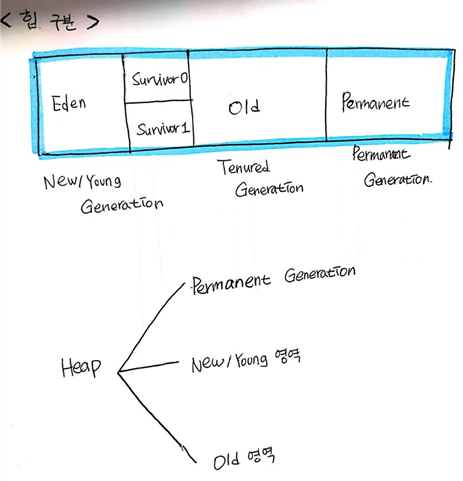 < 힙 구분 >
Eden
Survivor0
Survivor1
Old
Permanent
New/Young
Generation
Tenured
Generation
Permanent
Generation.
Heap
Permanent Generation
New/Young 영역
Old 영역